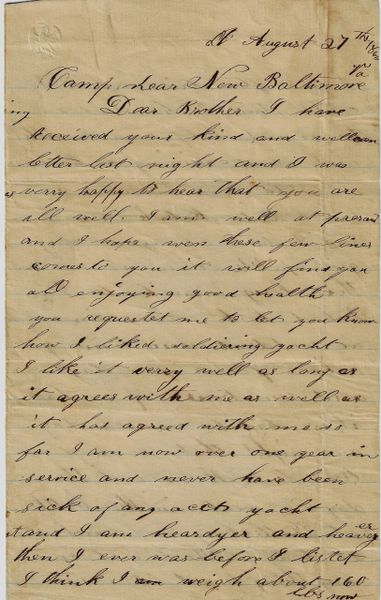 August 27 Th 186
Camp near New Baltimore Va
Dear Brother I have
received your kind and wellcom
letter last night and I was
verry happy to hear that you are
all well. I am well at presant
and I hope wen these few lines
comes to you it will find you
all enjoying good health
you requestet me to let you know
how I liked soldiering yacht
I like it verry well as long as
it agrees with me as well as
it has agreed with me so
far I am now over one year in
service and never have been
sick of any acct yacht
and I am heardyer and heavyer
then I ever was before I listet
I think I weigh about 160
lbs now